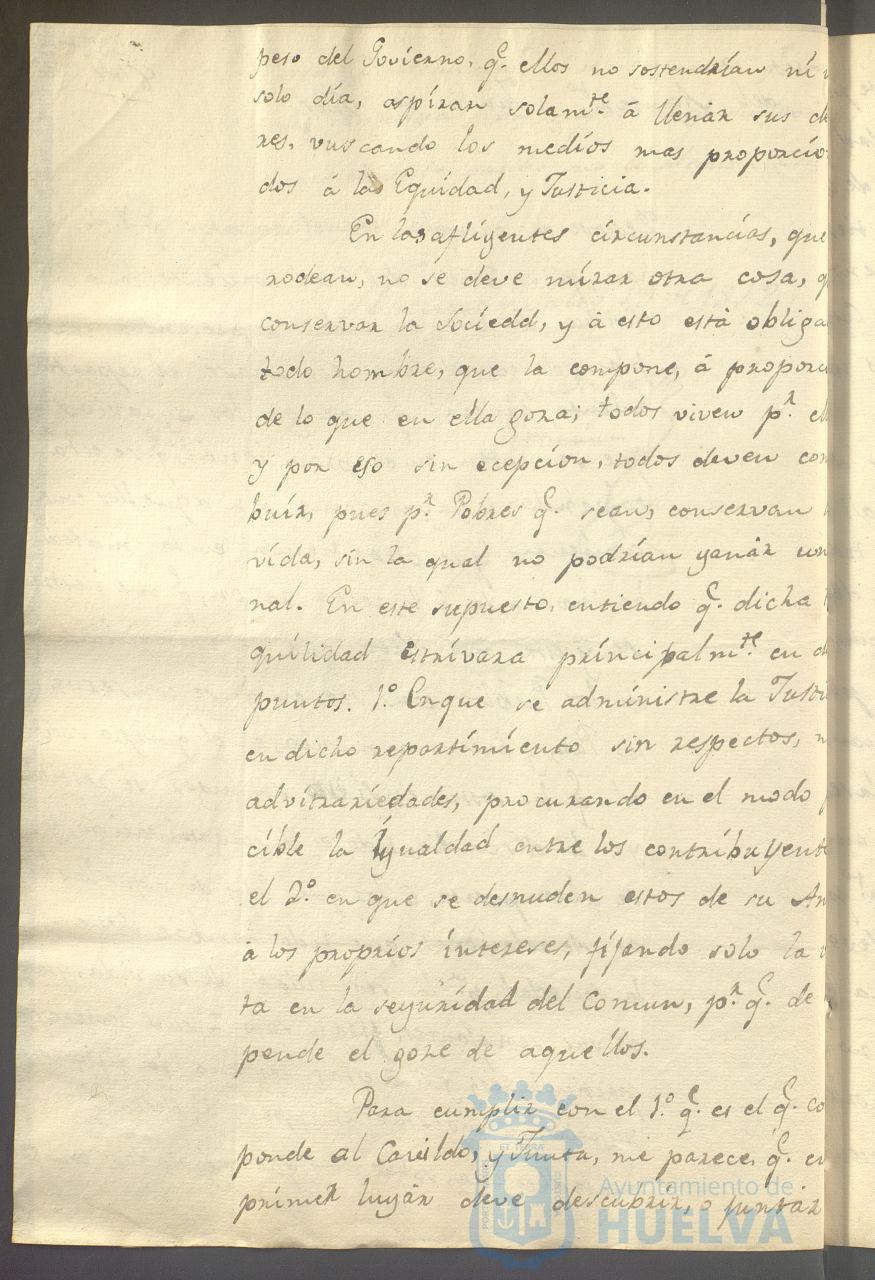 peso del Govierno, q.e ellos no sostendrian ni
solo día, aspiran solam.te á llenár sus de
res, vuscando los medios mas proporcio
dos á la Equidad, y Justicia.
En las afligentes circunstancias, que
rodean, no se deve mirar otra cosa, q
conservar la Sociedd, y á esto está obliga
todo hombre, que la compone, á proporci
de lo que en ella goza; todos viven p.r el
y por eso sin ecepcion, todos deven con
buír, pues p.r Pobres q.e sean, conservan
vida, sin la qual no podrían ganár
nal. En este supuesto, entiendo q.e dicha
quilidad estrívara principalm.te en d
puntos. 1.º Enque se administre la Justi
en dicho repartimiento sin respectos, n
advitrariedades, procurando en el modo p
cible la Ygualdad entre los contribuyente
el 2.º en que se desnuden estos de su Am
á los proprios intereses, fijando solo la v
ta en la seguridad del Comun, p.r q.e de
pende el goze de aquellos.
Para cumplir con el 1.º q.e es el q.e co
ponde al Cavildo, y Junta, me parece, q.e en
primer lugár deve descubrir, o juntár
Ayuntamiento de
HUELVA